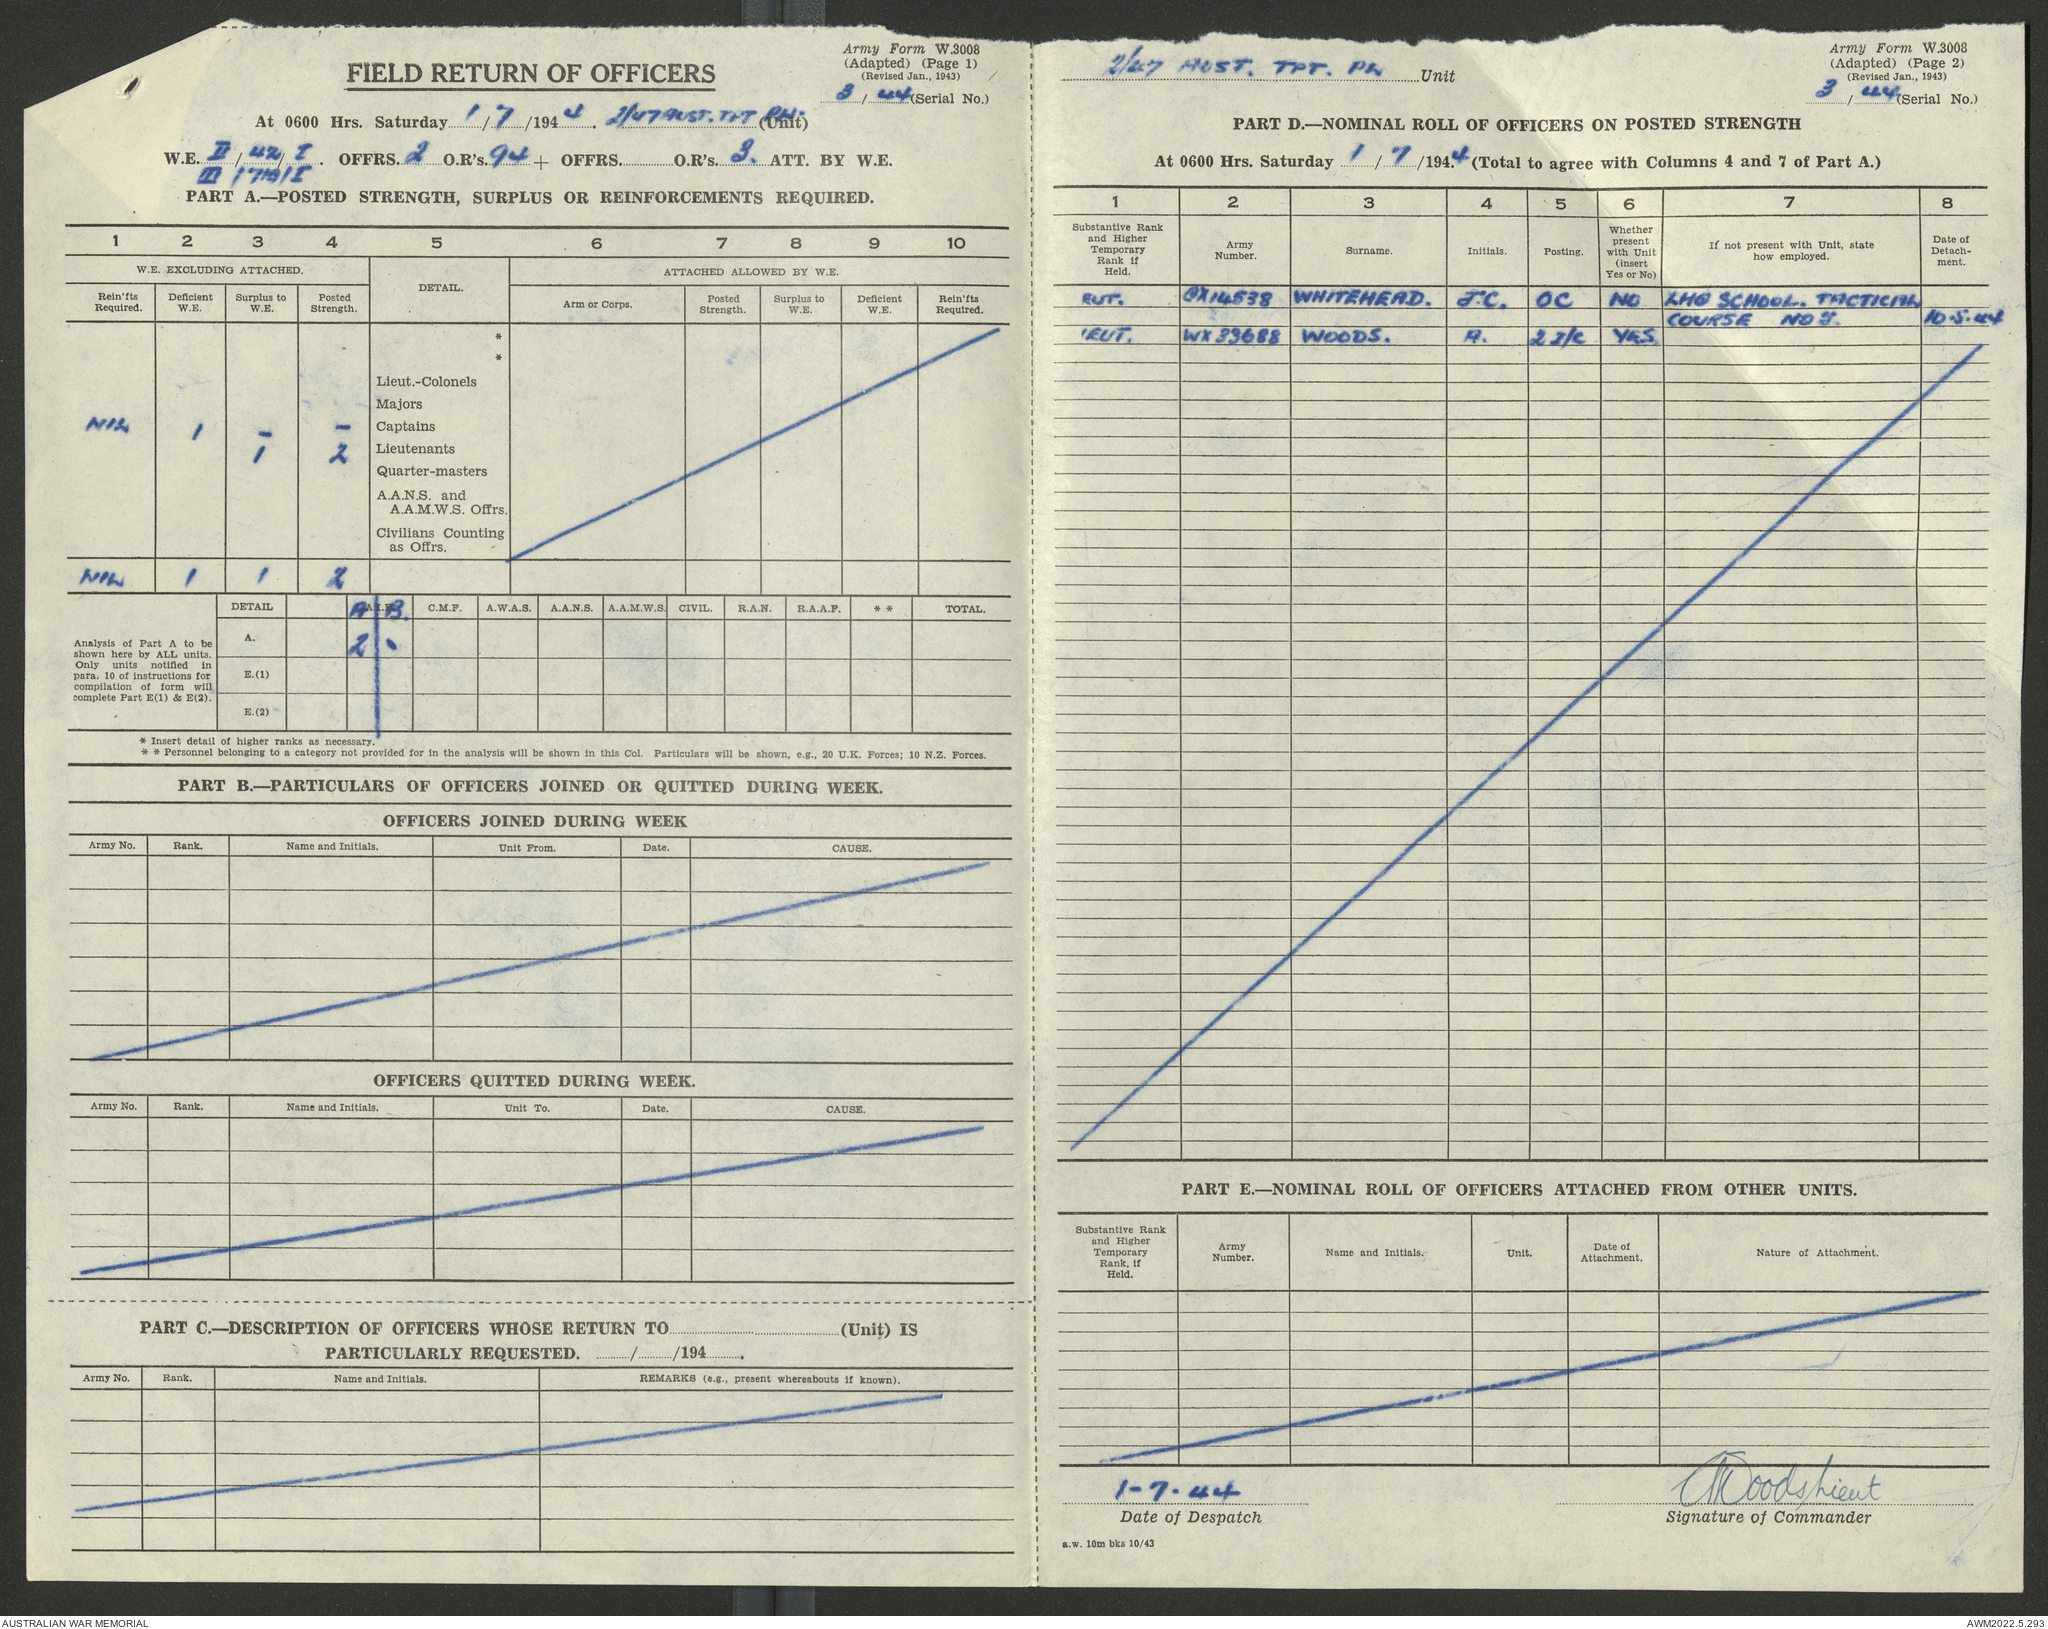 Army Form W.3008
(Adapted) (Page 1)
(Revised Jan., 1943)
3 / 44 (Serial No.)
FIELD RETURN OF OFFICERS
At 0600 Hrs. Saturday 1/7/1944. 2/47 AUST. TPT PL. (Unit)
W.E. II/42/I. OFFRS. 2 O.R's. 94 + OFFRS. O.R's. 3. ATT. BY W.E.
III / /I
PART A.—POSTED STRENGTH, SURPLUS OR REINFORCEMENTS REQUIRED.
1 2 3 4 5 6 7 8 9 10
W.E. EXCLUDING ATTACHED. DETAIL. ATTACHED ALLOWED BY W.E.
Rein'fts Required. Deficient W.E. Surplus to W.E. Posted Strength. Arm or Corps. Posted Strength. Surplus to W.E. Deficient W.E. Rein'fts Required.
*
*
Lieut.-Colonels
Majors
NIL 1 – – Captains
1 2 Lieutenants
Quarter-masters
A.A.N.S. and
A.A.M.W.S. Offrs.
Civilians Counting
as Offrs.
NIL 1 1 2
DETAIL A.I.F. A B. C.M.F. A.W.A.S. A.A.N.S. A.A.M.W.S. CIVIL. R.A.N. R.A.A.F. * * TOTAL.
A. 2 •
E.(1)
E.(2)
Analysis of Part A to be
shown here by ALL units.
Only units notified in
para. 10 of instructions for
compilation of form will
complete Part E(1) & E(2).
* Insert detail of higher ranks as necessary.
* * Personnel belonging to a category not provided for in the analysis will be shown in this Col. Particulars will be shown, e.g., 20 U.K. Forces; 10 N.Z. Forces.
PART B.—PARTICULARS OF OFFICERS JOINED OR QUITTED DURING WEEK.
OFFICERS JOINED DURING WEEK
Army No. Rank. Name and Initials. Unit From. Date. CAUSE.
OFFICERS QUITTED DURING WEEK.
Army No. Rank. Name and Initials. Unit To. Date. CAUSE.
PART C.—DESCRIPTION OF OFFICERS WHOSE RETURN TO (Unit) IS
PARTICULARLY REQUESTED. / /194 .
Army No. Rank. Name and Initials. REMARKS (e.g., present whereabouts if known).
2/47 AUST. TPT. PL Unit
Army Form W.3008
(Adapted) (Page 2)
(Revised Jan., 1943)
3 / 44 (Serial No.)
PART D.—NOMINAL ROLL OF OFFICERS ON POSTED STRENGTH
At 0600 Hrs. Saturday 1/7/1944 (Total to agree with Columns 4 and 7 of Part A.)
1 2 3 4 5 6 7 8
Substantive Rank and Higher Temporary Rank if Held. Army Number. Surname. Initials. Posting. Whether present with Unit (insert Yes or No) If not present with Unit, state how employed. Date of Detach-ment.
EUT. 14538 WHITEHEAD. J.C. OC NO LHQ SCHOOL. TACTICAL
COURSE NO 10-5-44
IEUT. WX 39688 WOODS. A. 2 I/C YES
PART E.—NOMINAL ROLL OF OFFICERS ATTACHED FROM OTHER UNITS.
Substantive Rank and Higher Temporary Rank, if Held. Army Number. Name and Initials. Unit. Date of Attachment. Nature of Attachment.
1-7-44
Date of Despatch
AWoods Lieut
Signature of Commander
a.w. 10m bks 10/43
AUSTRALIAN WAR MEMORIAL
AWM2022.5.293